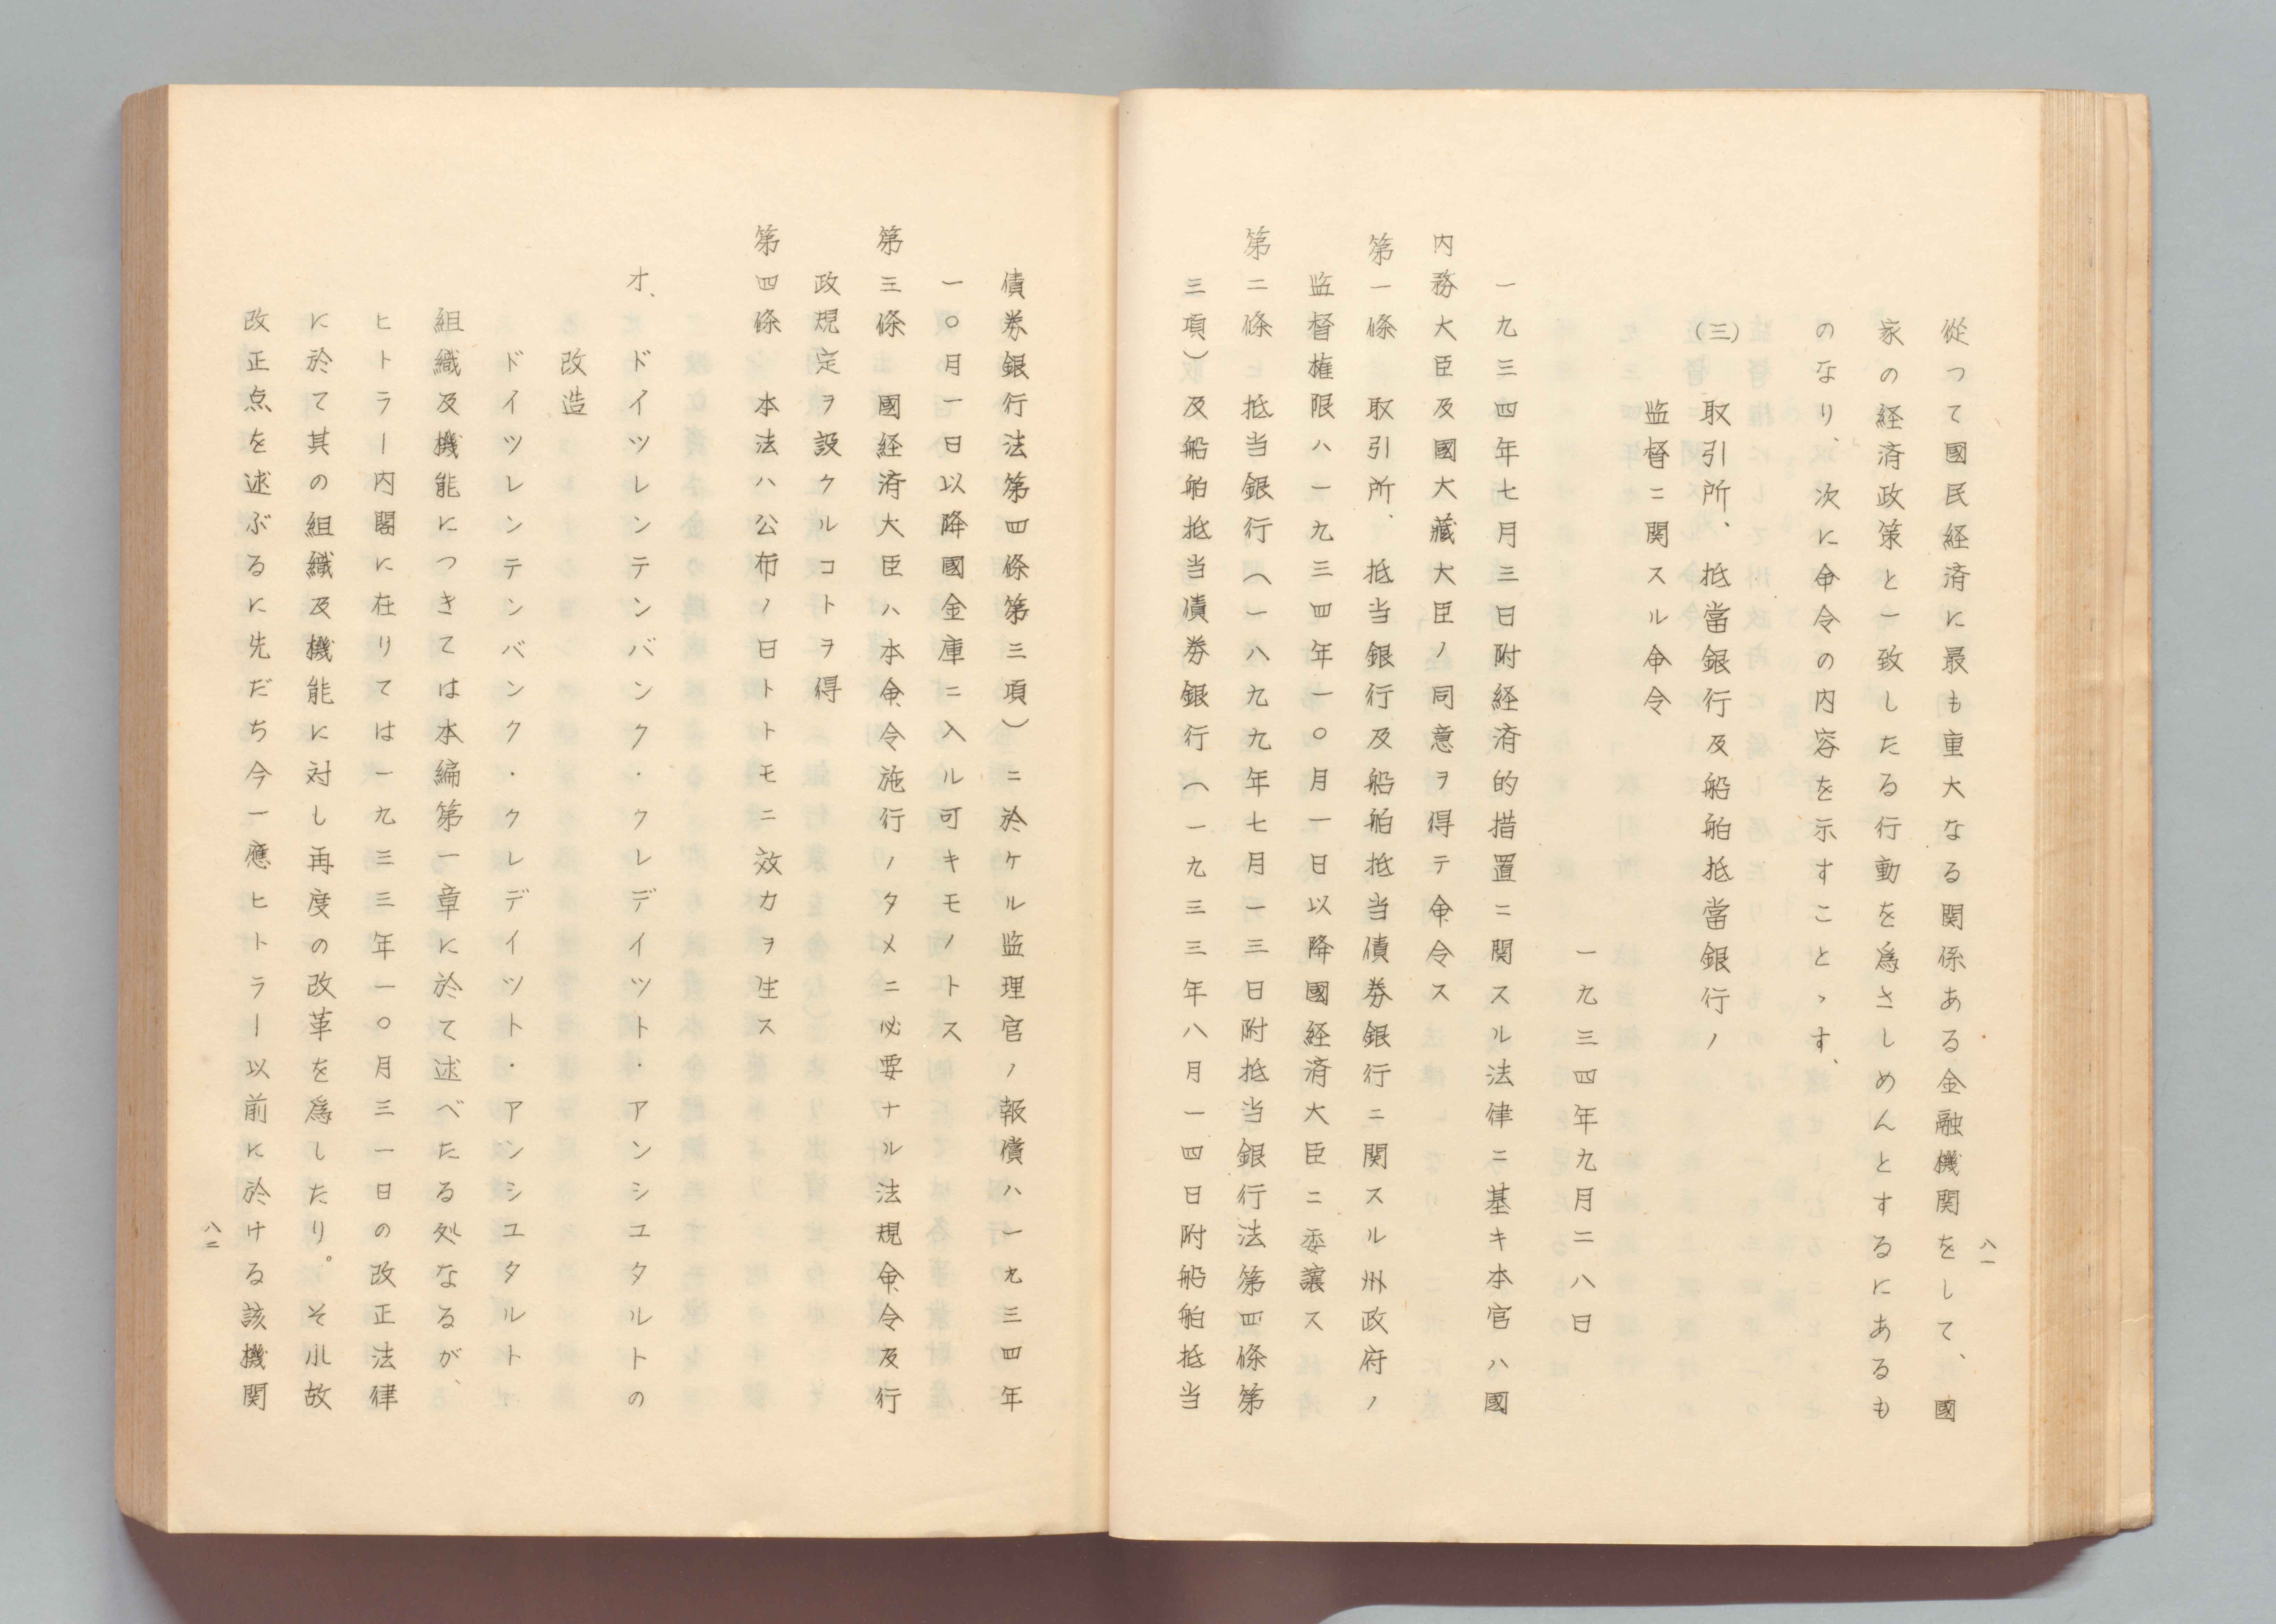 従つて國民経済に最も重大なる関係ある金融機関をして、國
家の経済政策と一致したる行動を爲さしめんとするにあるも
のなり、次に命令の内容を示すことゝす、
(三) 取引所、抵當銀行及船舶抵當銀行ノ
監督ニ関スル命令
一九三四年九月二八日
一九三四年七月三日附経済的措置ニ関スル法律ニ基キ本官ハ國
内務大臣及國大藏大臣ノ同意ヲ得テ命令ス
第一條 取引所、抵当銀行及船舶抵当債券銀行ニ関スル州政府ノ
監督権限ハ一九三四年一〇月一日以降國経済大臣ニ委譲ス
第二條 抵当銀行(一八九九年七月一三日附抵当銀行法第四條第
三項)及船舶抵当債券銀行(一九三三年八月一四日附船舶抵当
八一
債券銀行法第四條第三項)ニ於ケル監理官ノ報償ハ一九三四年
一〇月一日以降國金庫ニ入ル可キモノトス
第三條 國経済大臣ハ本命令施行ノタメニ必要ナル法規命令及行
政規定ヲ設クルコトヲ得
第四條 本法ハ公布ノ日トトモニ效力ヲ生ス
オ、ドイツレンテンバンク・クレデイツト・アンシユタルトの
改造
ドイツレンテンバンク・クレデイツト・アンシユタルト
組織及機能につきては本編第一章に於て述べたる処なるが、
ヒトラー内閣に在りては一九三三年一〇月三一日の改正法律
に於て其の組織及機能に対し再度の改革を爲したり。そ小故
改正点を述ぶるに先だち今一應ヒトラー以前に於ける該機関
八二